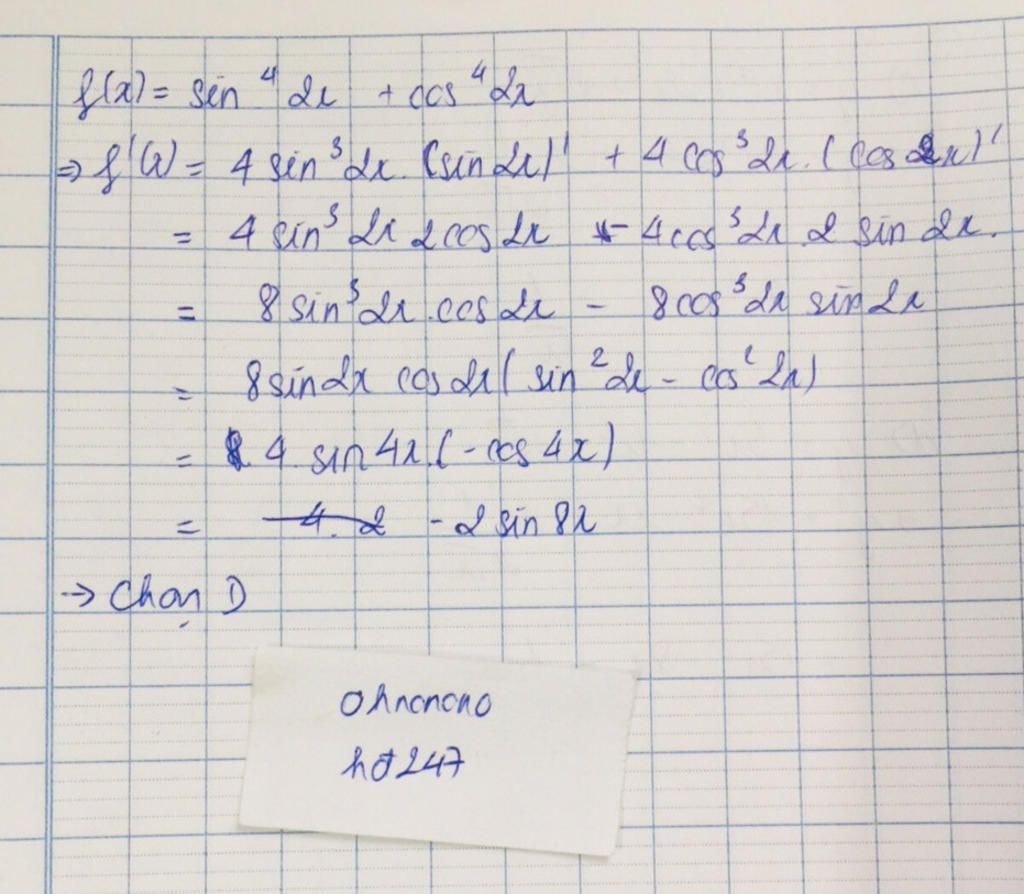 f(x) = sin⁴ 2x + cos⁴ 2x
⇒ f'(x) = 4 sin³ 2x. (sin 2x)' + 4 cos³ 2x. (cos 2x)'
= 4 sin³ 2x 2 cos 2x - 4 cos³ 2x 2 sin 2x.
= 8 sin³ 2x. cos 2x - 8 cos³ 2x sin 2x
= 8 sin 2x cos 2x ( sin² 2x - cos² 2x)
= 4. sin 4x. (- cos 4x)
= - 2 sin 8x
→ Chọn D
Ohnonono
hđ247